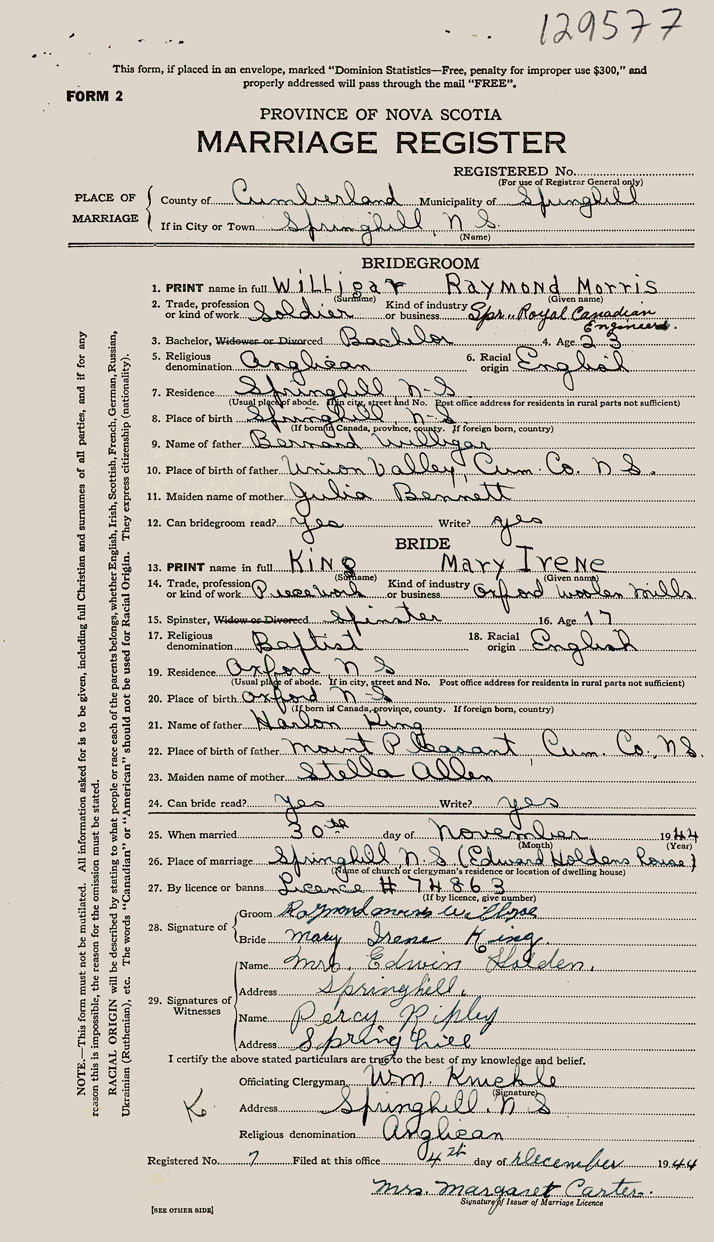 129577
This form, if placed in an envelope, marked "Dominion Statistics—Free, penalty for improper use $300," and
properly addressed will pass through the mail "FREE".
FORM 2
PROVINCE OF NOVA SCOTIA
MARRIAGE REGISTER
REGISTERED No.
(For use of Registrar General only)
PLACE OF MARRIAGE
County of Cumberland Municipality of Springhill
If in City or Town Springhill, N S.
(Name)
BRIDEGROOM
1. PRINT name in full Willigar Raymond Morris
(Surname) (Given name)
2. Trade, profession or kind of work Soldier Kind of industry or business Spr. Royal Canadian Engineers.
3. Bachelor, Widower or Divorced Bachelor 4. Age 23
5. Religious denomination Anglican 6. Racial origin English
7. Residence Springhill N-S
(Usual place of abode. If in city, street and No. Post office address for residents in rural parts not sufficient)
8. Place of birth Springhill N-S
(If born in Canada, province, county. If foreign born, country)
9. Name of father Bernard Willigar
10. Place of birth of father Union Valley, Cum. Co. N S.
11. Maiden name of mother Julia Bennett
12. Can bridegroom read? Yes Write? yes
BRIDE
13. PRINT name in full King Mary Irene
(Surname) (Given name)
14. Trade, profession or kind of work Piece work Kind of industry or business Oxford Woolen Mills
15. Spinster, Widow or Divorced Spinster 16. Age 17
17. Religious denomination Baptist 18. Racial origin English
19. Residence Oxford N S
(Usual place of abode. If in city, street and No. Post office address for residents in rural parts not sufficient)
20. Place of birth Oxford N-S
(If born in Canada, province, county. If foreign born, country)
21. Name of father Harlon King
22. Place of birth of father Mount Pleasant, Cum. Co., N S.
23. Maiden name of mother Stella Allen
24. Can bride read? Yes Write? yes
25. When married 30th day of November 1944
(Month) (Year)
26. Place of marriage Springhill, N. S (Edward Holdens house)
(Name of church or clergyman's residence or location of dwelling house)
27. By licence or banns Licence # 74863
(If by licence, give number)
28. Signature of
Groom Raymond Morris
Bride Mary Irene King.
29. Signatures of Witnesses
Name Mrs. Edwin Holden.
Address Springhill.
Name Percy Ripley
Address Springhill
I certify the above stated particulars are true to the best of my knowledge and belief.
Officiating Clergyman Wm. Knickle
(Signature)
K
Address Springhill. N S
Religious denomination Anglican
Registered No. 7 Filed at this office 4th day of December 1944
Mrs. Margaret Carter.
Signature of Issuer of Marriage Licence
[SEE OTHER SIDE]
NOTE.—This form must not be mutilated. All information asked for is to be given, including full Christian and surnames of all parties, and if for any
reason this is impossible, the reason for the omission must be stated.
RACIAL ORIGIN will be described by stating to what people or race each of the parents belongs, whether English, Irish, Scottish, French, German, Russian,
Ukrainian (Ruthenian), etc. The words "Canadian" or "American" should not be used for Racial Origin. They express citizenship (nationality).